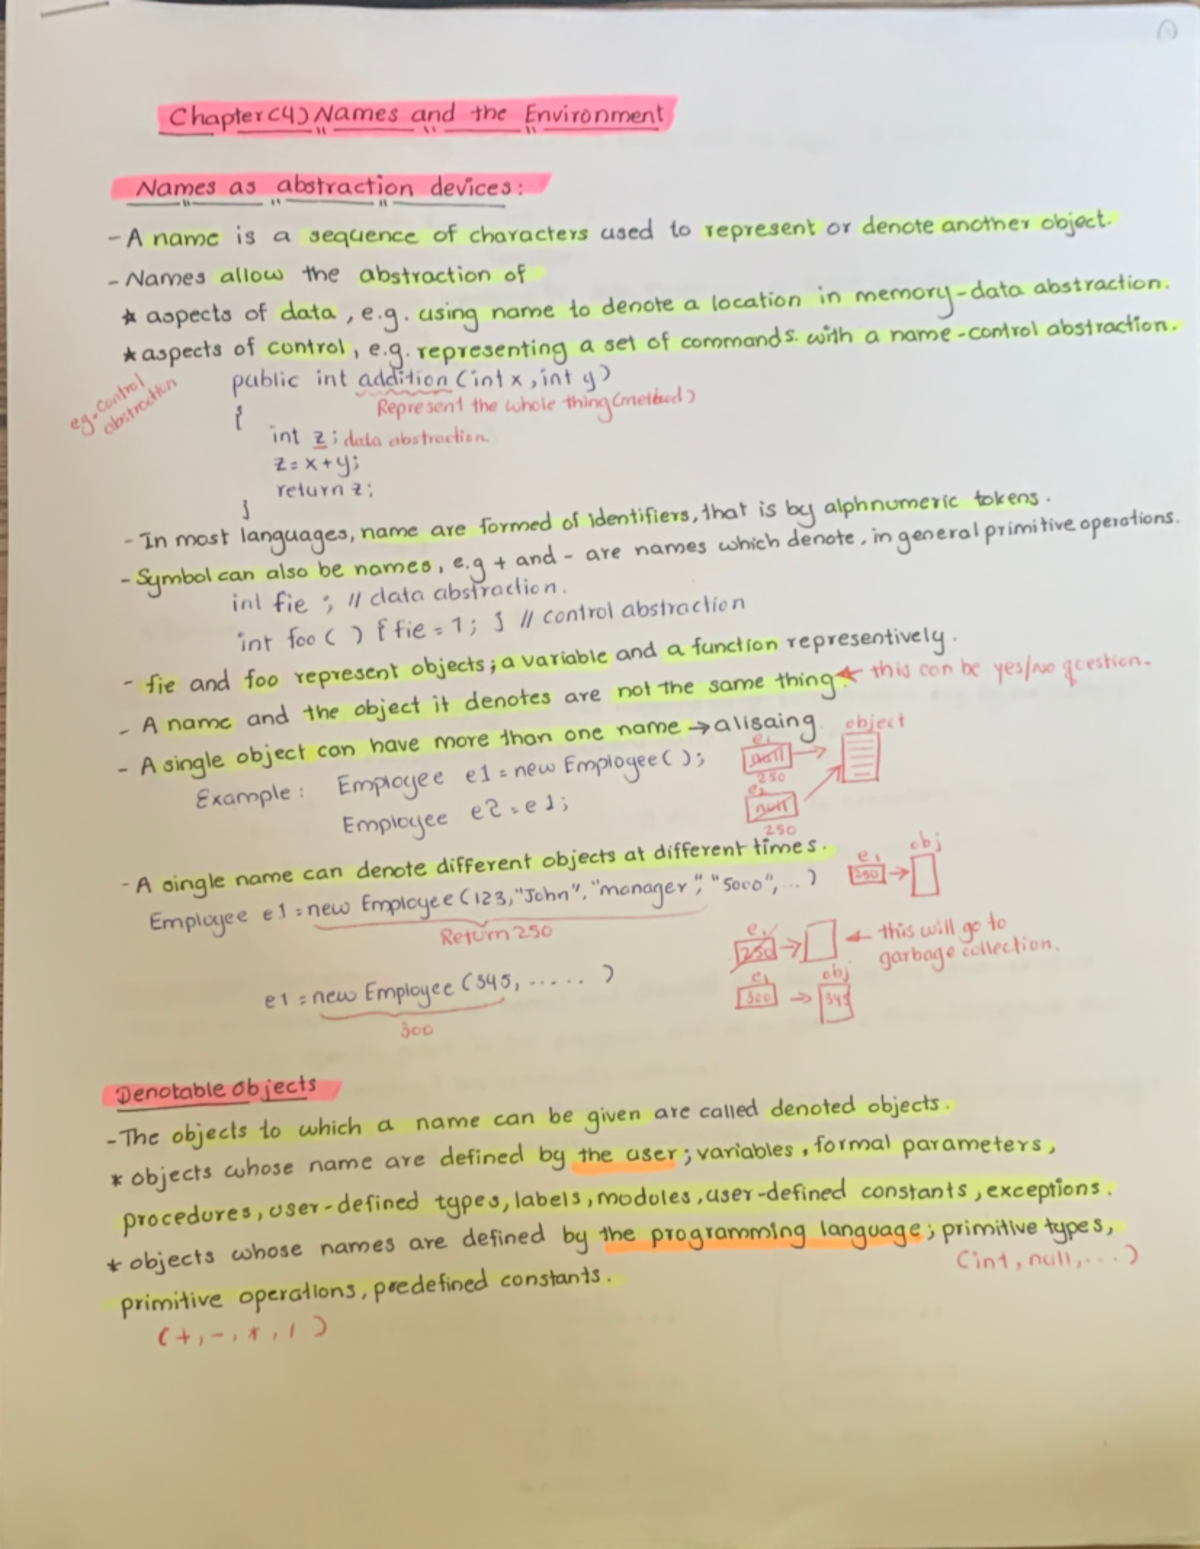 Chapter(4) Names and the Environment
Names as abstraction devices:
- A name is a sequence of characters used to represent or denote another object.
- Names allow the abstraction of
* aspects of data, e.g. using name to denote a location in memory-data abstraction.
* aspects of control, e.g. representing a set of commands. with a name-control abstraction.
eg. control abstraction
public int addition (int x, int y)
Represent the whole thing (method)
{
int z; data abstraction
z = x + y;
return z;
}
- In most languages, name are formed of identifiers, that is by alphnumeric tokens.
- Symbol can also be names, e.g + and - are names which denote, in general primitive operations.
int fie ; // data abstraction.
int foo ( ) { fie = 1; } // control abstraction
- fie and foo represent objects; a variable and a function representively.
- A name and the object it denotes are not the same thing. this can be yes/no question.
- A single object can have more than one name → alisaing.
Example: Employee e1 = new Employee( );
Employee e2 = e1;
e1 object
null
250
e2
null
250
- A single name can denote different objects at different times.
e1 obj
250
Employee e1 = new Employee (123, "John", "manager", "5000", ...)
Return 250
e1
250
this will go to
garbage collection.
e1 = new Employee (345, ..... )
300
e1 obj
300 → 345
Denotable objects
- The objects to which a name can be given are called denoted objects.
* objects whose name are defined by the user; variables, formal parameters,
procedures, user-defined types, labels, modules, user-defined constants, exceptions.
* objects whose names are defined by the programming language; primitive types,
(int, null, ...)
primitive operations, predefined constants.
(+, -, *, / )